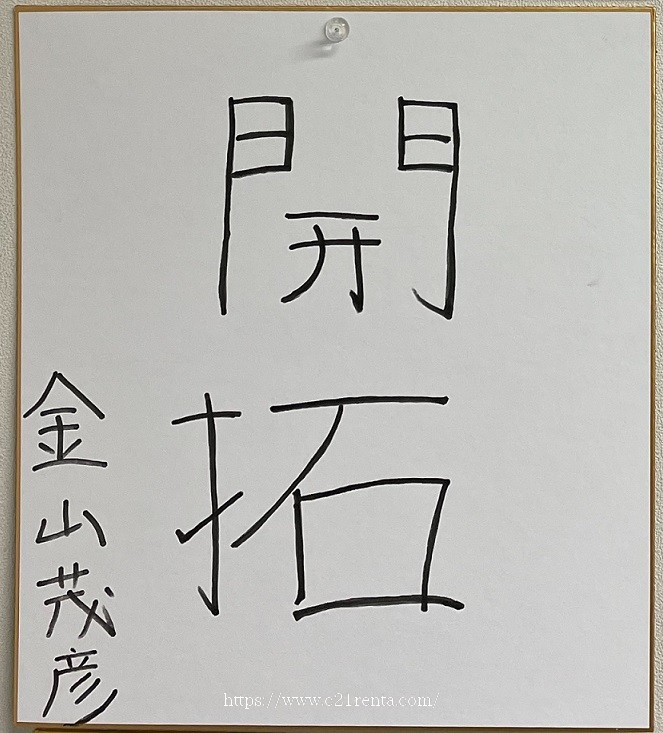 開拓
金山茂彦
https://www.c21renta.com/